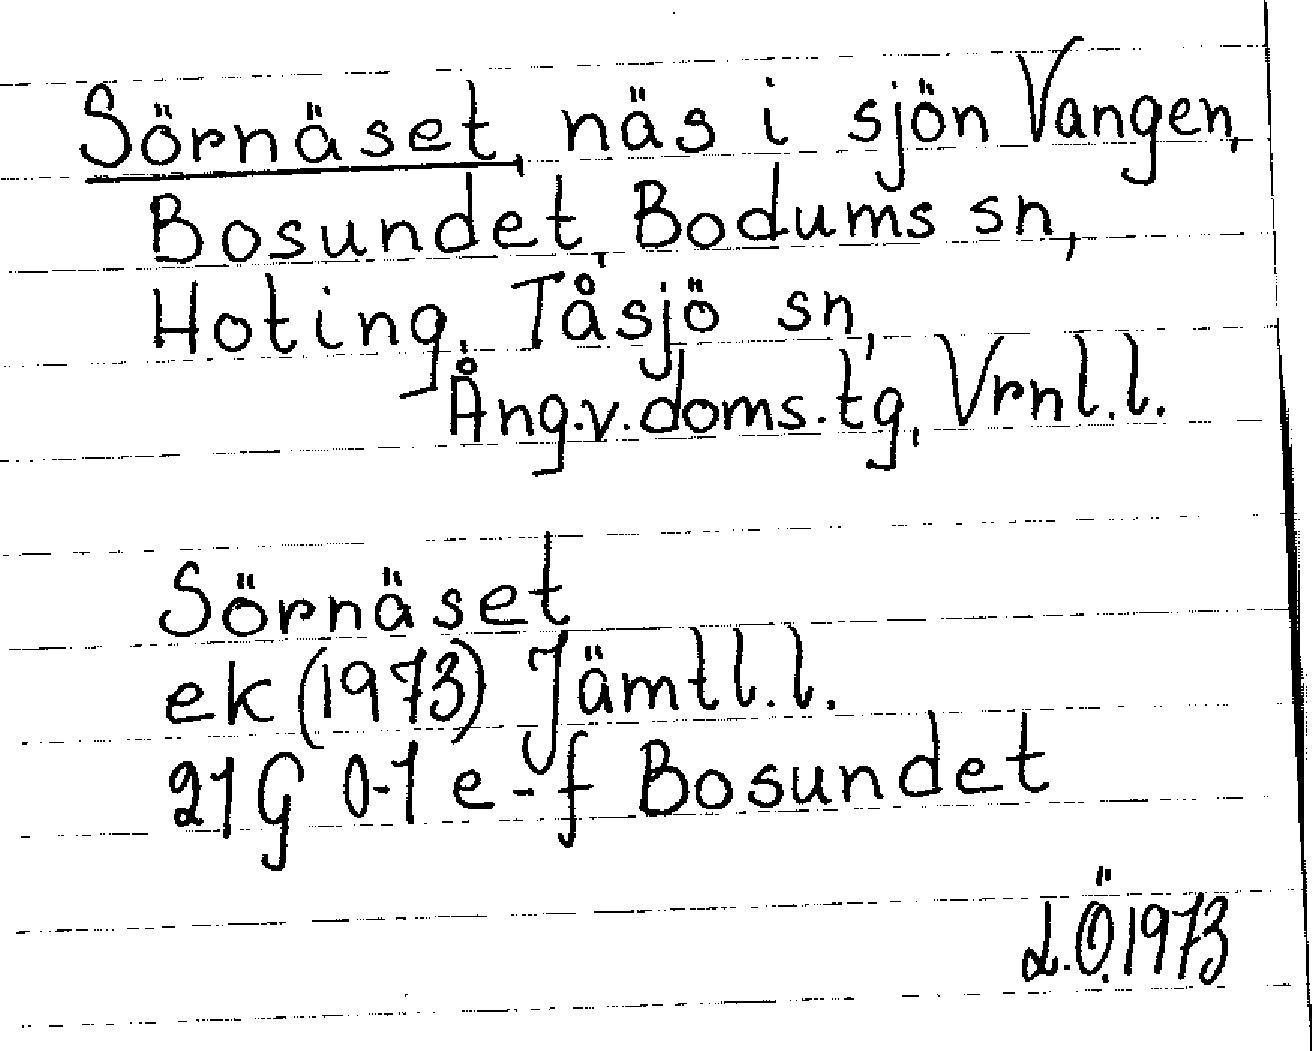 Sörnäset, näs i sjön Vangen,
Bosundet, Bodums sn,
Hoting, Tåsjö sn,
Ång.v.doms.tg, Vrnl.l.
Sörnäset
ek (1973) Jämtl.l.
21G 0-1 e-f Bosundet
L.Ö.1973